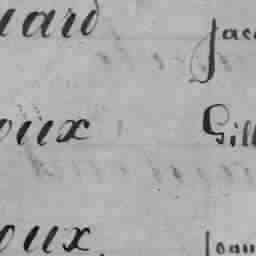 uard Jac
oux Gill
oux Jean